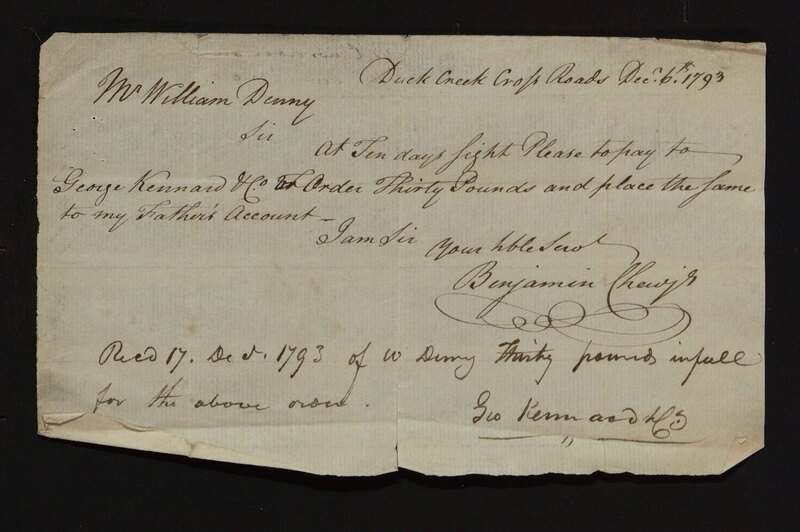 Duck Creek Cross Roads Decr. 6th. 1793
Mr William Denny
Sir
At Ten days sight Please to pay to
George Kennard & Co or Order Thirty Pounds and place the same
to my Father's Account
I am Sir
Your hble Servt
Benjamin Chew Jr
Recd 17. Decr. 1793 of W Denny thirty pounds in full
for the above order.
Geo Kennard & Co